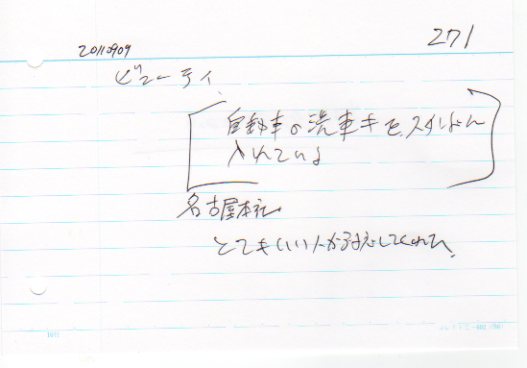 20110909
271
ビューティ
自動車の洗車キを
入れている
名古屋本社
とてもいい人が対応してくれた。